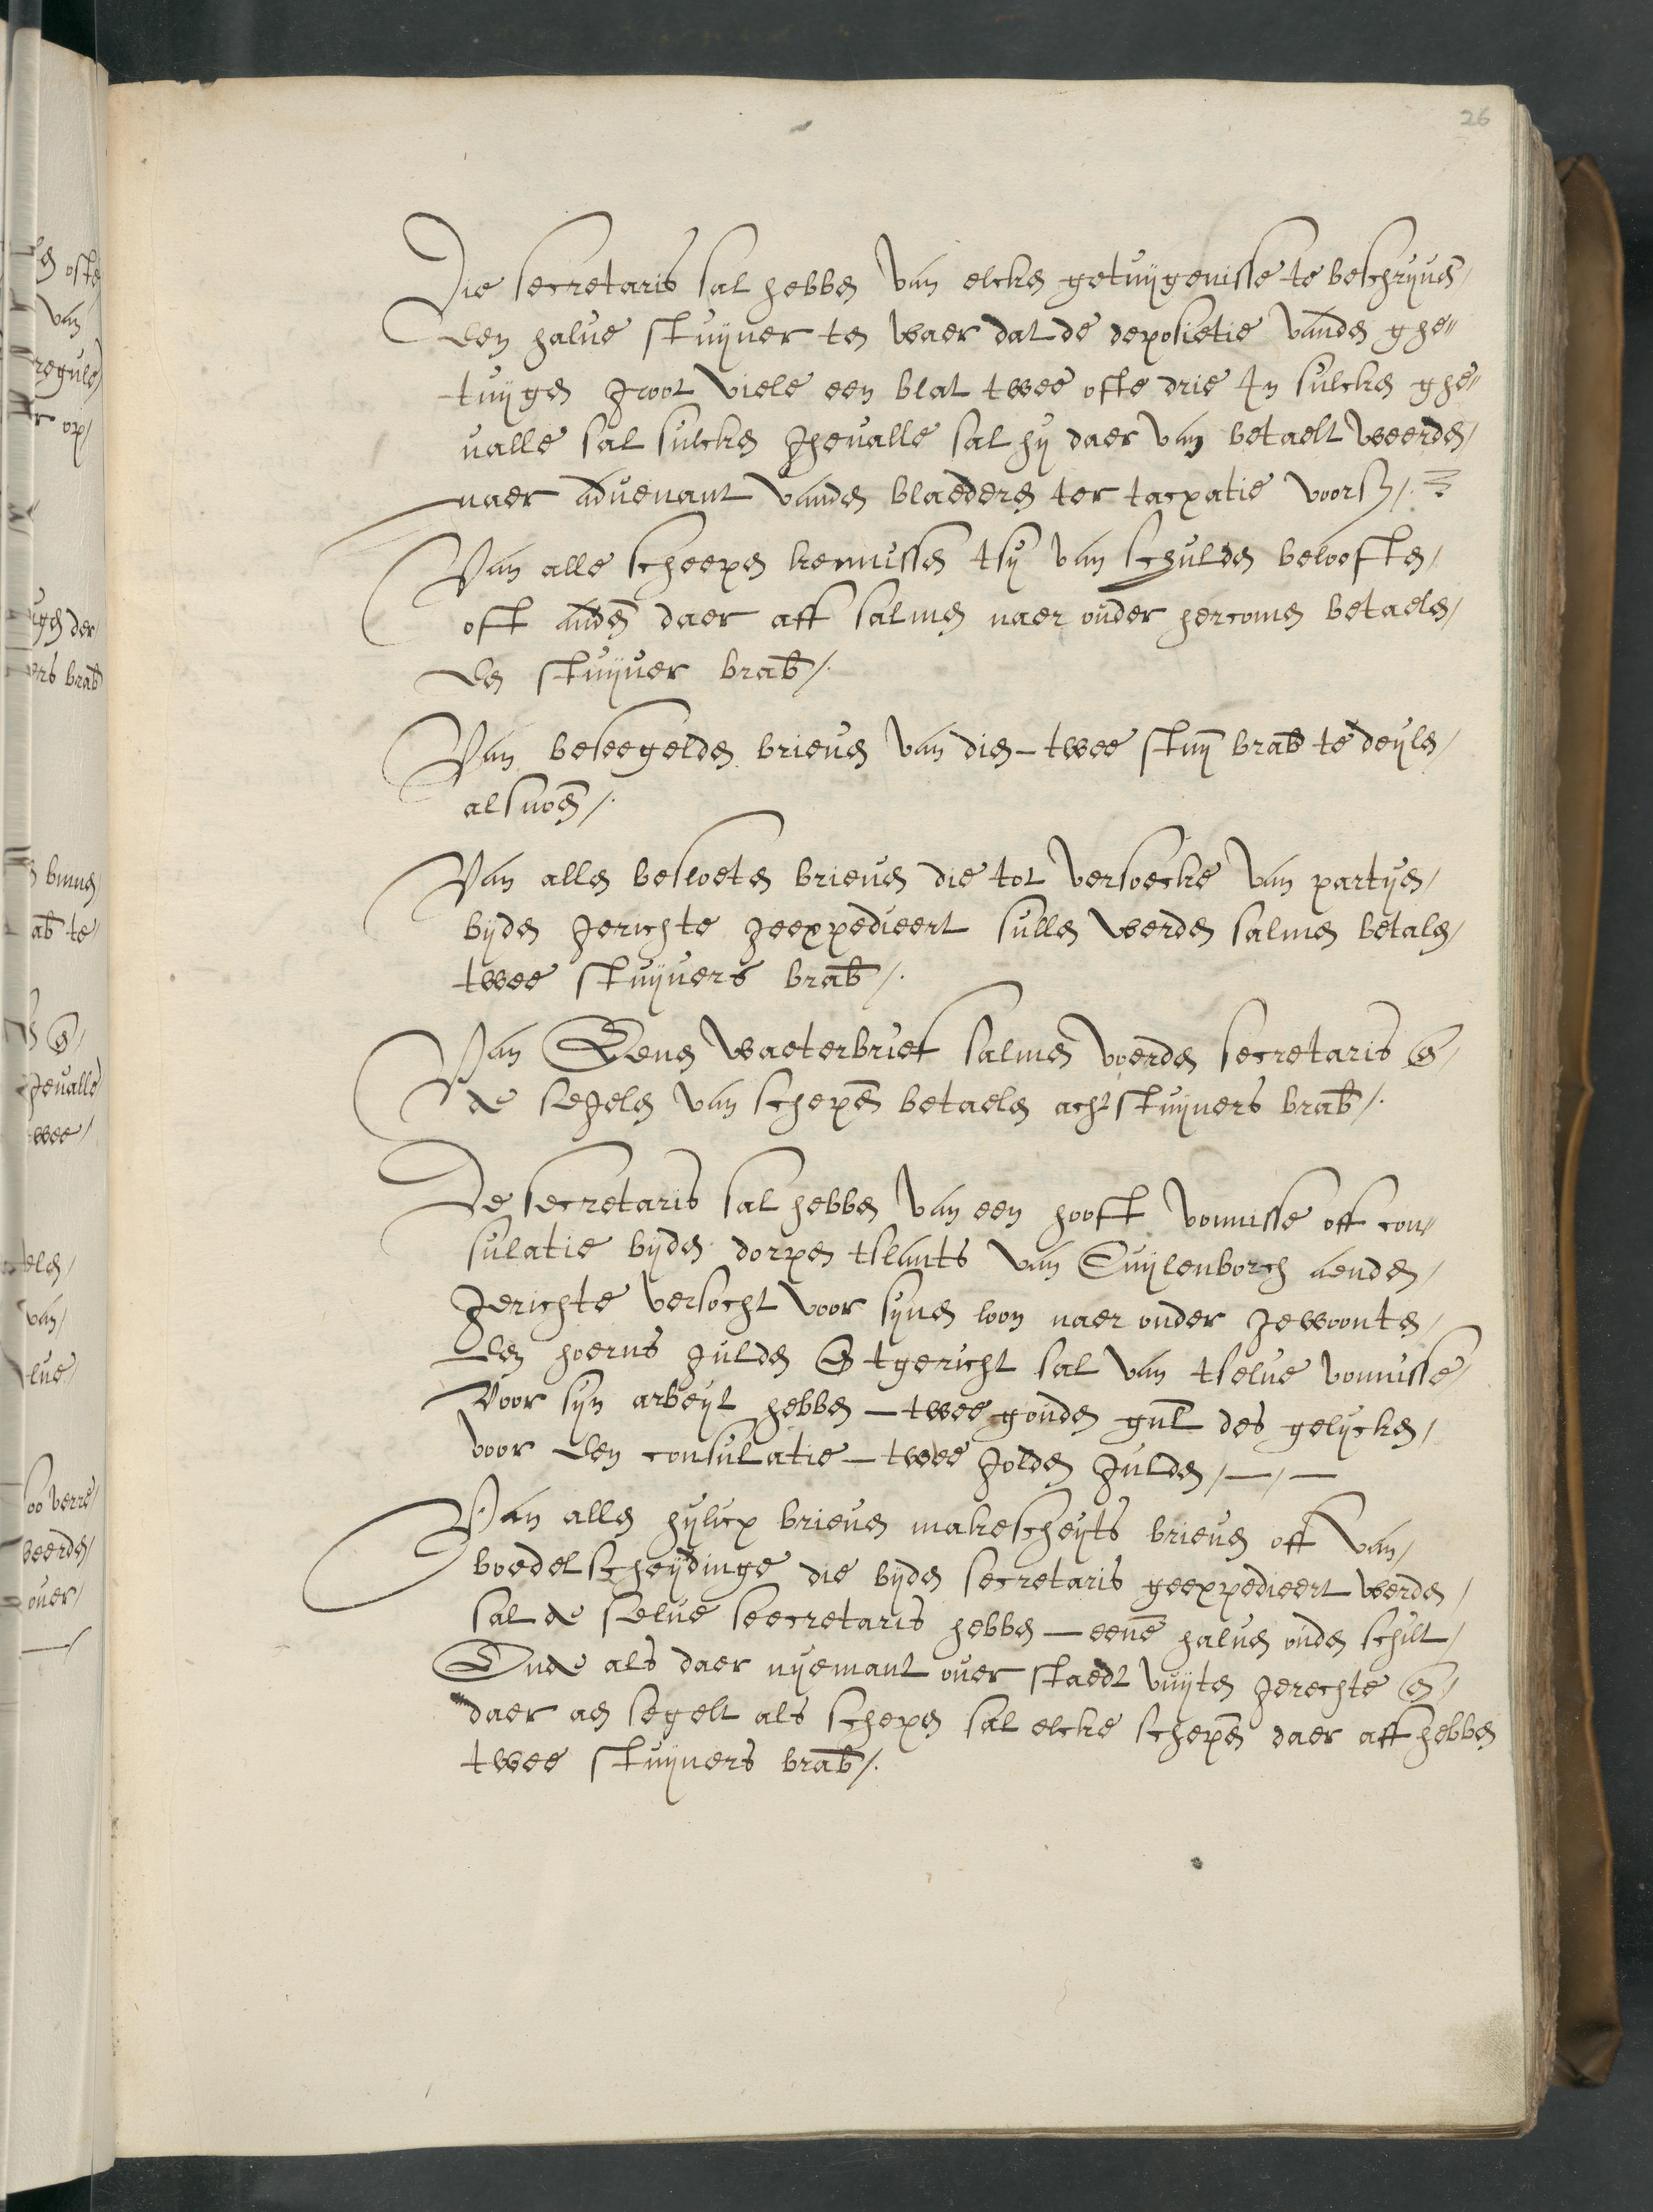 26
Die secretaris sal hebben van elcken getuijgenisse te beschrijuen
Een halue stuijuer ten waer dat de deposietie vanden ghe"
tuijgen groot viele een blat twee ofte drie In sulcken ghe"
ualle sal sulcken gheualle sal hij daer van betaelt weerden
naer aduenant vanden blaederen ter tacxatie voors/.
Van alle scheepen kennissen tsij van schulden beloeften
oft anders daer aff salmen naer ouder hercomen betaelen
Een stuijuer brab/.
Van beseegelden brieuen van dien - twee stuij brab te deijlen
alsuoer/.
Van allen besloeten brieuen die tot versoecke van partijen
bijden gerichte geexpedieert sullen werden salmen betalen
twee stuijuers brab/.
Van Eenen waeterbrief salmen voerden secretaris en
de segelen van schepen betaelen acht stuijuers brab/.
De secretaris sal hebben van een hooft vonnisse off con"
sulatie bijden dorpen tslants van Cuijlenborch aenden
gerichte versocht voor sijnen loon naer ouder gewoonten
Een hoerns gulden en tgericht sal van tselue vonnisse
Voor sijn arbeijt hebben - twee gouden gul des gelijcken
voor Een consulatie - twee golden gulden / — / —
Van allen hijlicx brieuen makescheijts brieuen off van
boedelscheijdinge die bijden secretaris geexpedieert werden
sal de selue seecretaris hebben - eene haluen ouden schilt
Ende als daer nijemant ouer staedt vuijten gerechte en
daer aen segelt als schepen sal elcke schepen daer aff hebben
twee stuijuers brab/.